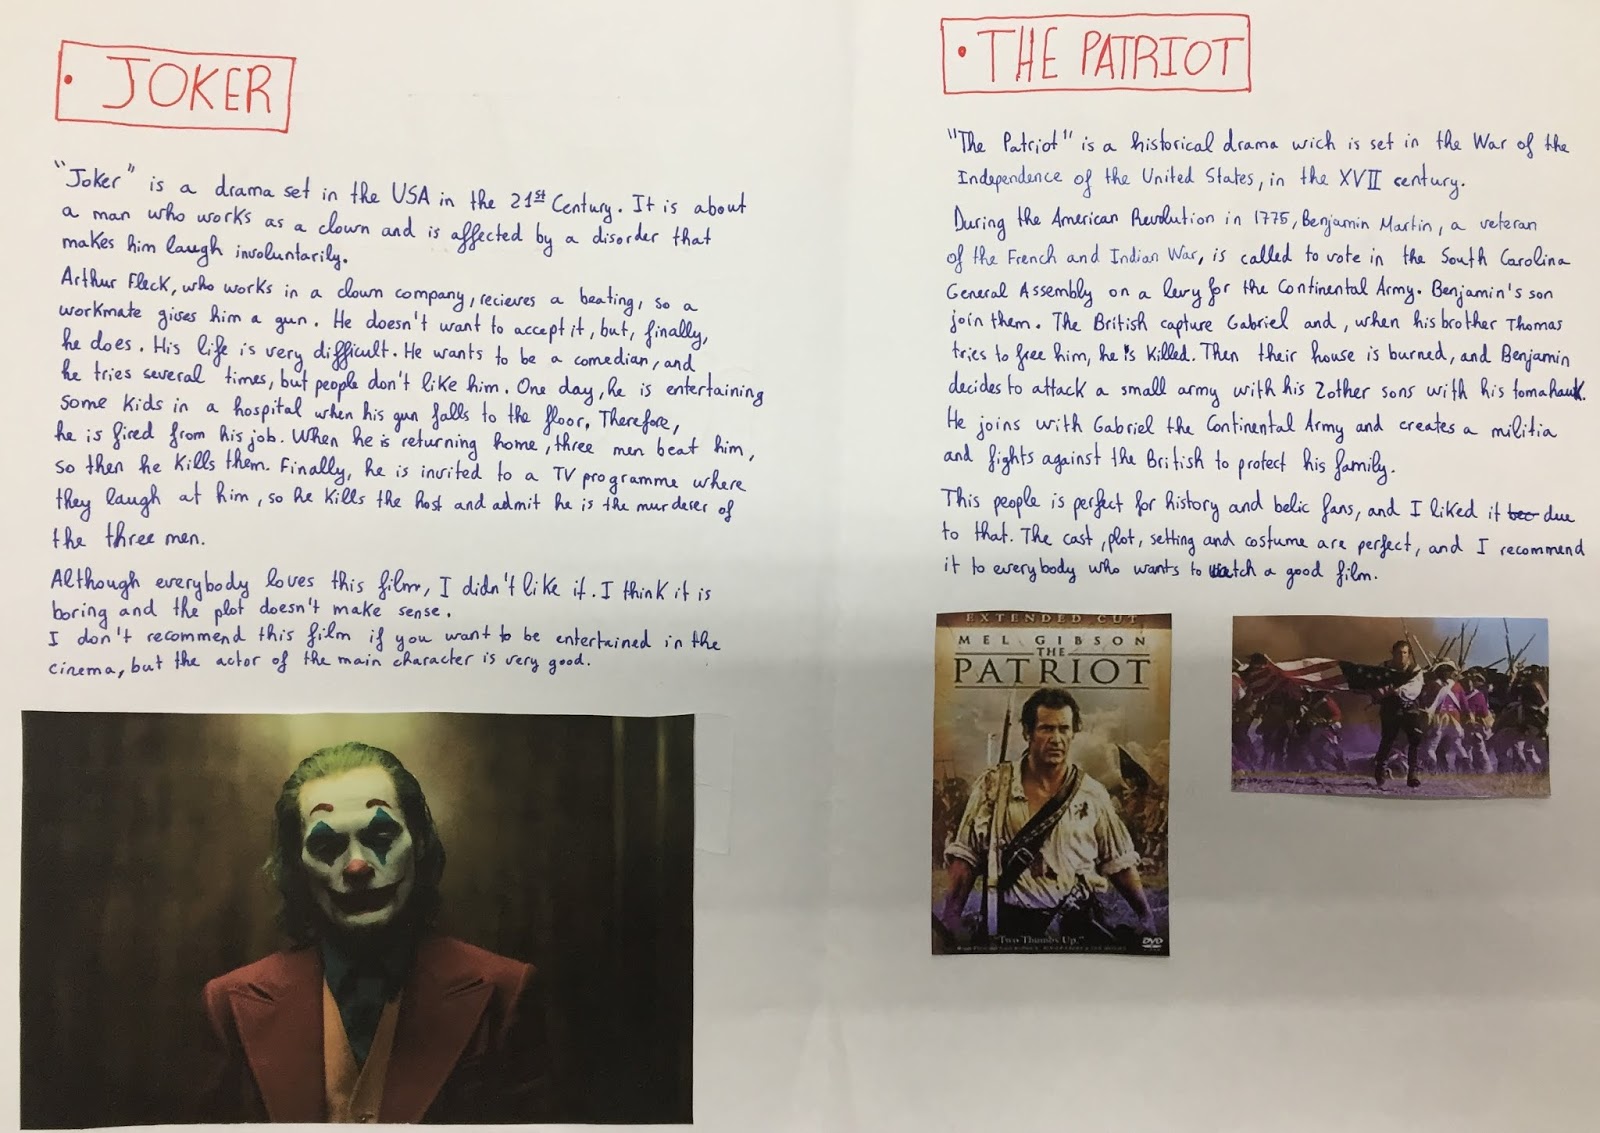 • JOKER
"Joker" is a drama set in the USA in the 21st Century. It is about
a man who works as a clown and is affected by a disorder that
makes him laugh involuntarily.
Arthur Fleck, who works in a clown company, recieves a beating, so a
workmate gives him a gun. He doesn't want to accept it, but, finally,
he does. His life is very difficult. He wants to be a comedian, and
he tries several times, but people don't like him. One day, he is entertaining
some kids in a hospital when his gun falls to the floor. Therefore,
he is fired from his job. When he is returning home, three men beat him,
so then he kills them. Finally, he is invited to a TV programme where
they laugh at him, so he kills the host and admit he is the murderer of
the three men.
Although everybody loves this film, I didn't like it. I think it is
boring and the plot doesn't make sense.
I don't recommend this film if you want to be entertained in the
cinema, but the actor of the main character is very good.
• THE PATRIOT
"The Patriot" is a historical drama wich is set in the War of the
Independence of the United States, in the XVII century.
During the American Revolution in 1775, Benjamin Martin, a veteran
of the French and Indian War, is called to vote in the South Carolina
General Assembly on a levy for the Continental Army. Benjamin's son
join them. The British capture Gabriel and, when his brother Thomas
tries to free him, he is killed. Then their house is burned, and Benjamin
decides to attack a small army with his 2 other sons with his tomahauk.
He joins with Gabriel the Continental Army and creates a militia
and fights against the British to protect his family.
This people is perfect for history and belic fans, and I liked it due
to that. The cast, plot, setting and costume are perfect, and I recommend
it to everybody who wants to watch a good film.
EXTENDED CUT
MEL GIBSON
THE
PATRIOT
"Two Thumbs Up."
DVD